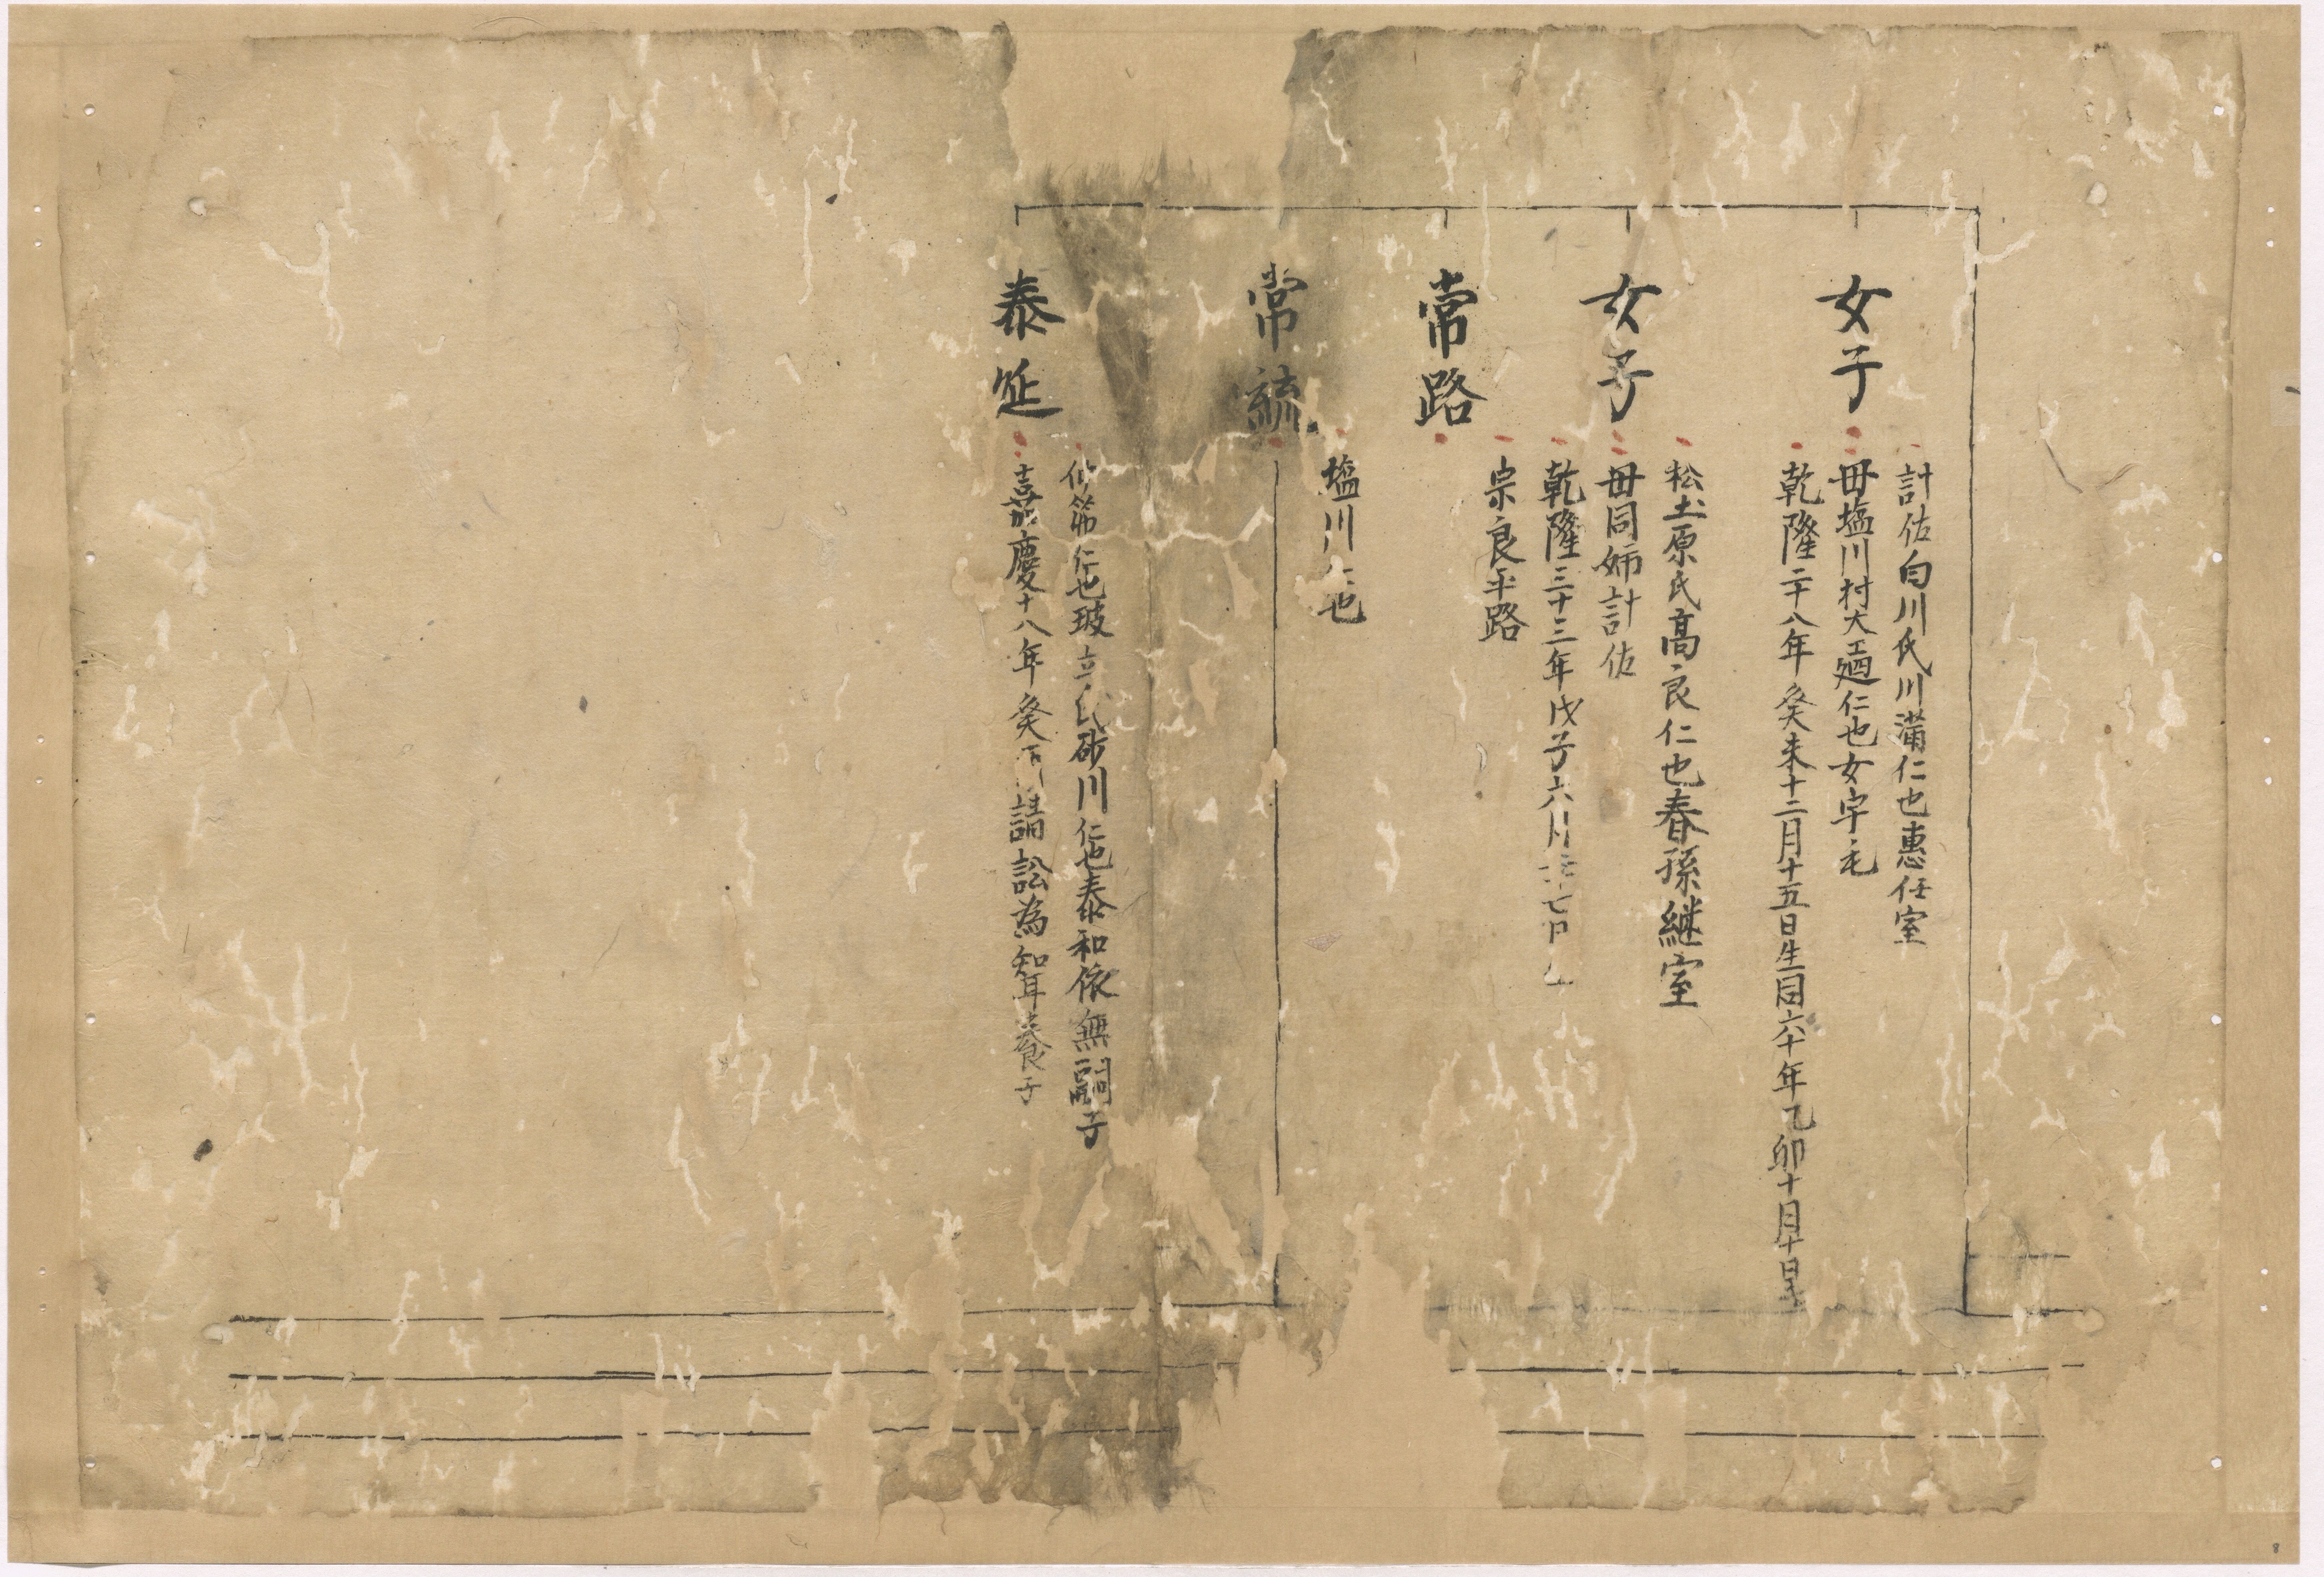 計佐白川氏川満仁也惠任室
女子
毋塩川村大工廻仁也女字毛
乾隆二十八年癸未十二月十五日生同六十年乙卯十月十日
松土原氏高良仁也春孫継室
女子
毋同姉計佐
乾隆三十三年戊子六月 七日
宗良平路
常路
塩川仁也
常
筑仁也玻立氏砂川仁也泰和依無嗣子
泰延
嘉慶十八年癸酉請訟為知耳養子
8